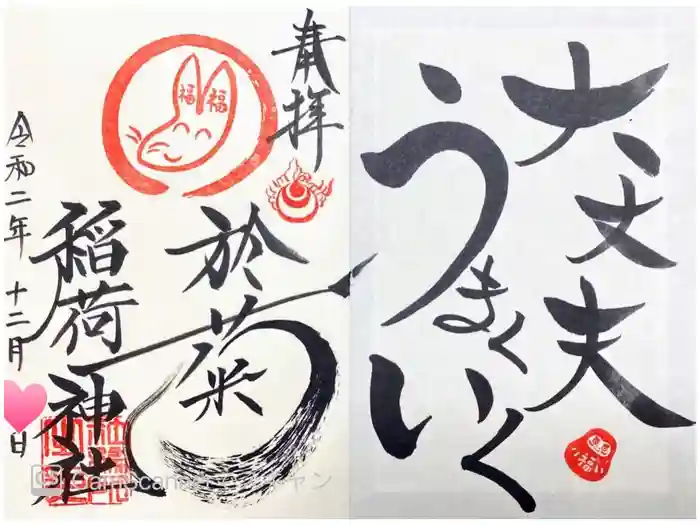 大丈夫
うまくいく
奉拝
福 福
於菊
稲荷神社
令和二年 十二月 日